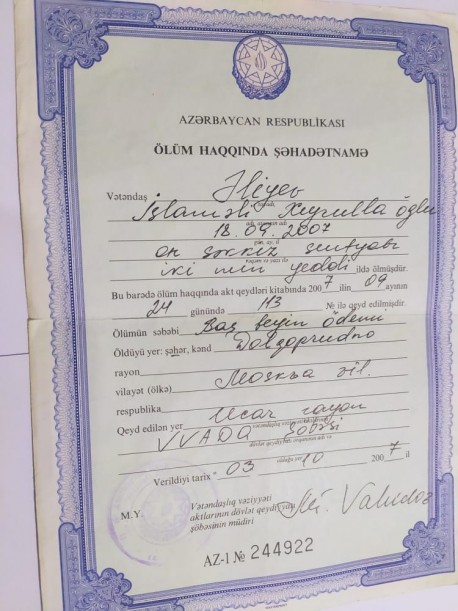 AZƏRBAYCAN RESPUBLİKASI
ÖLÜM HAQQINDA ŞƏHADƏTNAMƏ
Vətəndaş Əliyev
İslaməli Xeyrulla oğlu
18.09.2007
on səkkiz sentyabr
iki min yeddi ildə ölmüşdür.
Bu barədə ölüm haqqında akt qeydləri kitabında 2007 ilin 09 ayının
24 günündə 113 № ilə qeyd edilmişdir.
Ölümün səbəbi Baş beyin ödemi
Öldüyü yer: şəhər, kənd Dolqoprudno
rayon
vilayət (ölkə) Москва vil.
respublika
Qeyd edilən yer Ucar rayon
VVADQ şöbəsi
Verildiyi tarix " 03 10 2007 il
M.Y. Vətəndaşlıq vəziyyəti
aktlarının dövlət qeydiyyatı
şöbəsinin müdiri
AZ-1 № 244922